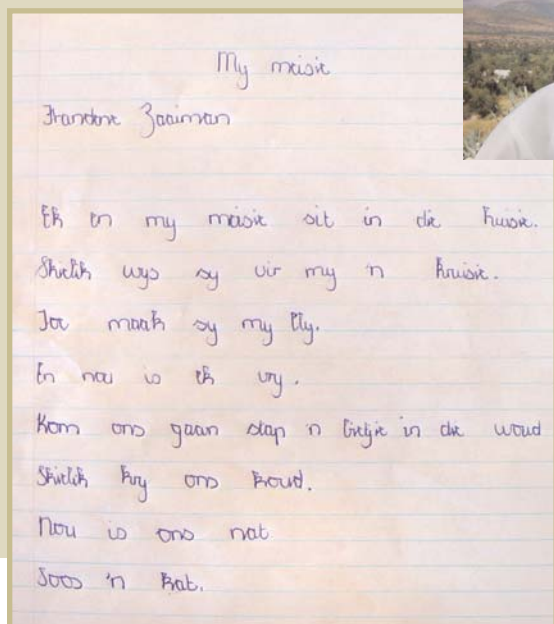 My meisie
Frandene Zaaiman
Ek en my meisie sit in die huisie.
Skielik wys sy vir my 'n kruisie.
Toe maak sy my bly.
En nou is ek vry.
Kom ons gaan stap 'n bietjie in die woud
Skielik kry ons koud.
Nou is ons nat
Soos 'n kat.